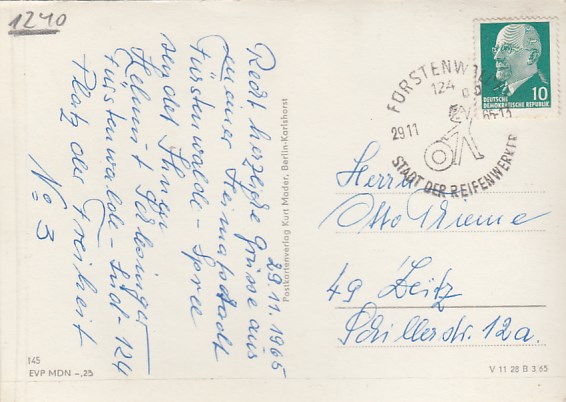 1240
29.11.1965
Recht herzliche Grüsse aus
meiner Heimatstadt
Fürstenwalde - Spree
sendet Ihnen
Helmut
Fürstenwalde - Süd - 124
Platz der Freiheit
No 3
Postkartenverlag Kurt Mader, Berlin-Karlshorst
145
EVP MDN -,25
FÜRSTENWALDE
124
29.11
65-11
STADT DER REIFENWERKER
DEUTSCHE
DEMOKRATISCHE REPUBLIK
10
Herrn
Otto
49 Zeitz
Schillerstr. 12a.
V 11 28 B 3/65